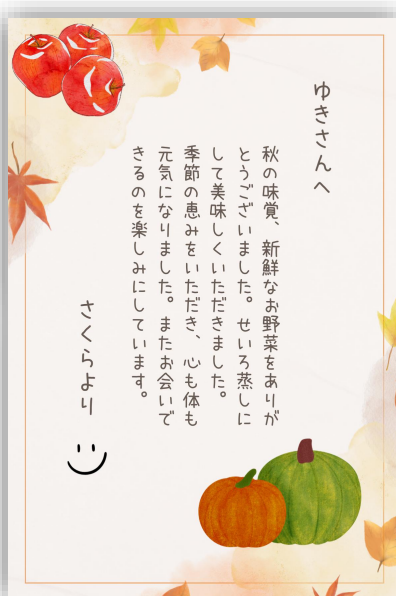 ゆきさんへ
秋の味覚、新鮮なお野菜をありが
とうございました。せいろ蒸しに
して美味しくいただきました。
季節の恵みをいただき、心も体も
元気になりました。またお会いで
きるのを楽しみにしています。
さくらより